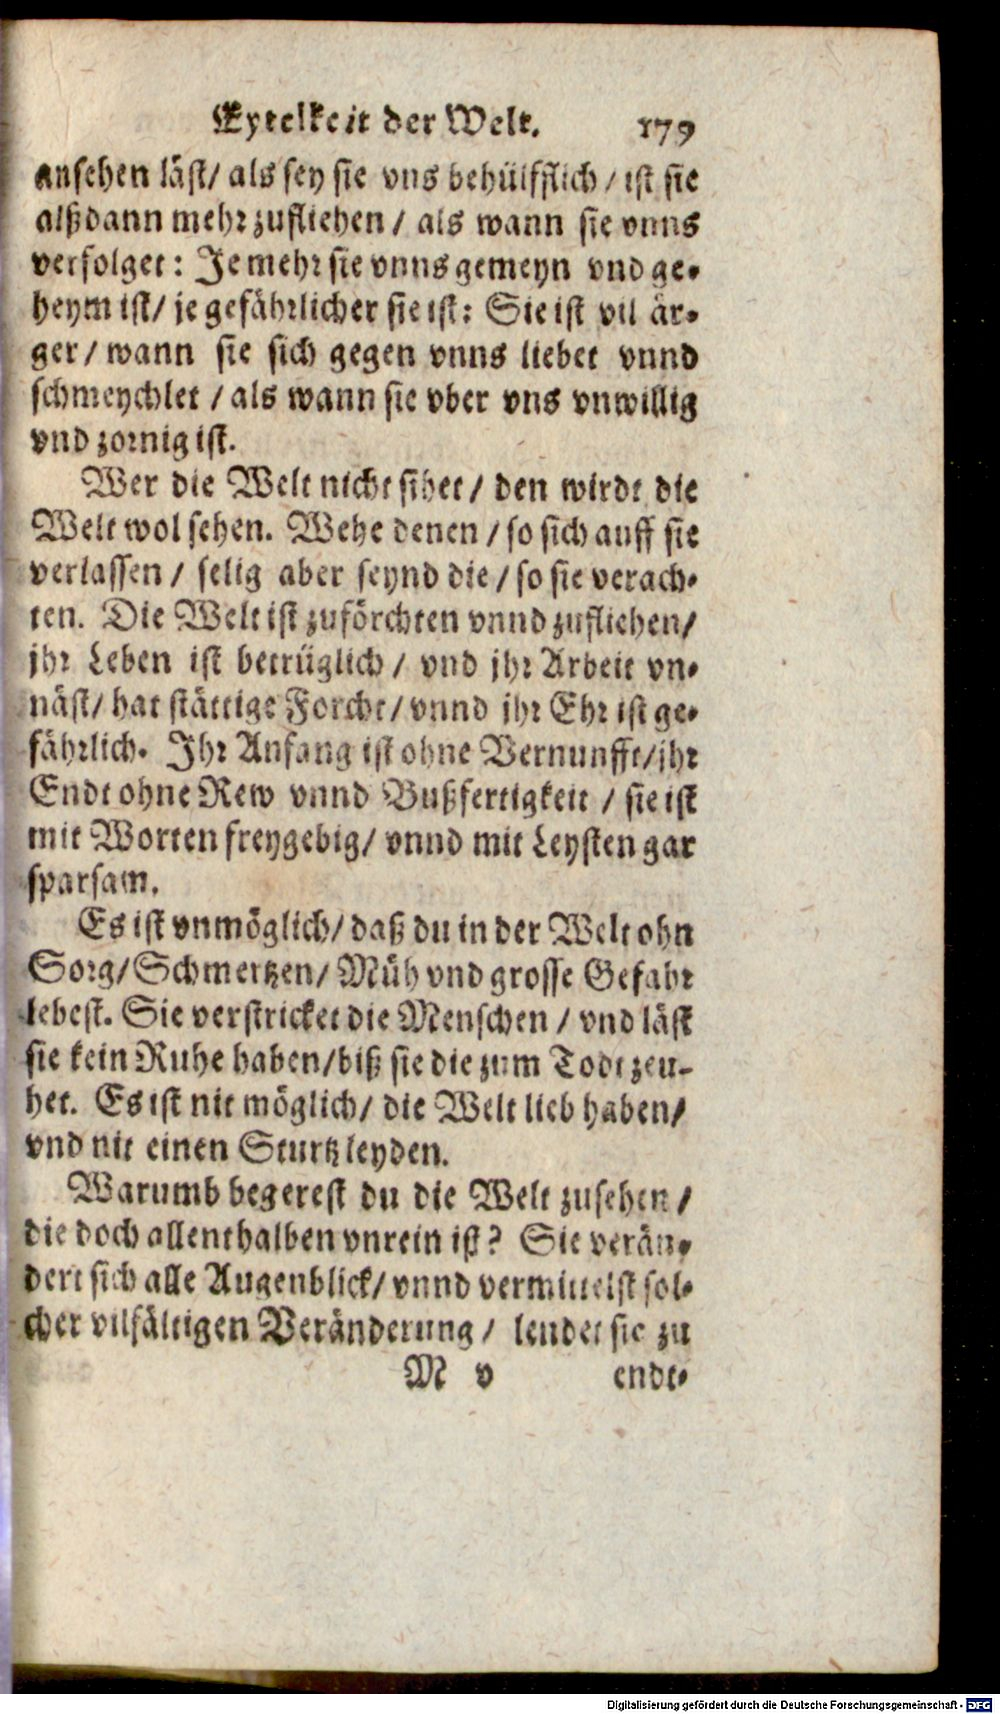 Eytelkeit der Welt. 179
ansehen läst/ als sey sie vns behülfflich / ist sie
alßdann mehr zufliehen / als wann sie vnns
verfolget: Je mehr sie vnns gemeyn vnd ge-
heym ist/ je gefährlicher sie ist: Sie ist vil är-
ger / wann sie sich gegen vnns liebet vnnd
schmeychlet / als wann sie vber vns vnwillig
vnd zornig ist.
Wer die Welt nicht sihet / den wirdt die
Welt wol sehen. Wehe denen / so sich auff sie
verlassen / selig aber seynd die / so sie verach-
ten. Die Welt ist zuförchten vnnd zufliehen/
jhr Leben ist betrüglich / vnd jhr Arbeit vn-
näst/ hat stättige Forcht/ vnnd jhr Ehr ist ge-
fährlich. Ihr Anfang ist ohne Vernunfft/jhr
Endt ohne Rew vnnd Bußfertigkeit / sie ist
mit Worten freygebig/ vnnd mit Leysten gar
sparsam.
Es ist vnmöglich/ daß du in der Welt ohn
Sorg/ Schmertzen/ Müh vnd grosse Gefahr
lebest. Sie verstricket die Menschen / vnd läst
sie kein Ruhe haben/biß sie die zum Todt zeu-
het. Es ist nit möglich/ die Welt lieb haben/
vnd nit einen Sturtz leyden.
Warumb begerest du die Welt zusehen /
die doch allenthalben vnrein ist? Sie verän-
dert sich alle Augenblick/ vnnd vermittelst sol-
cher vilfältigen Veränderung / lendet sie zu
M v endt-
Digitalisierung gefördert durch die Deutsche Forschungsgemeinschaft - DFG